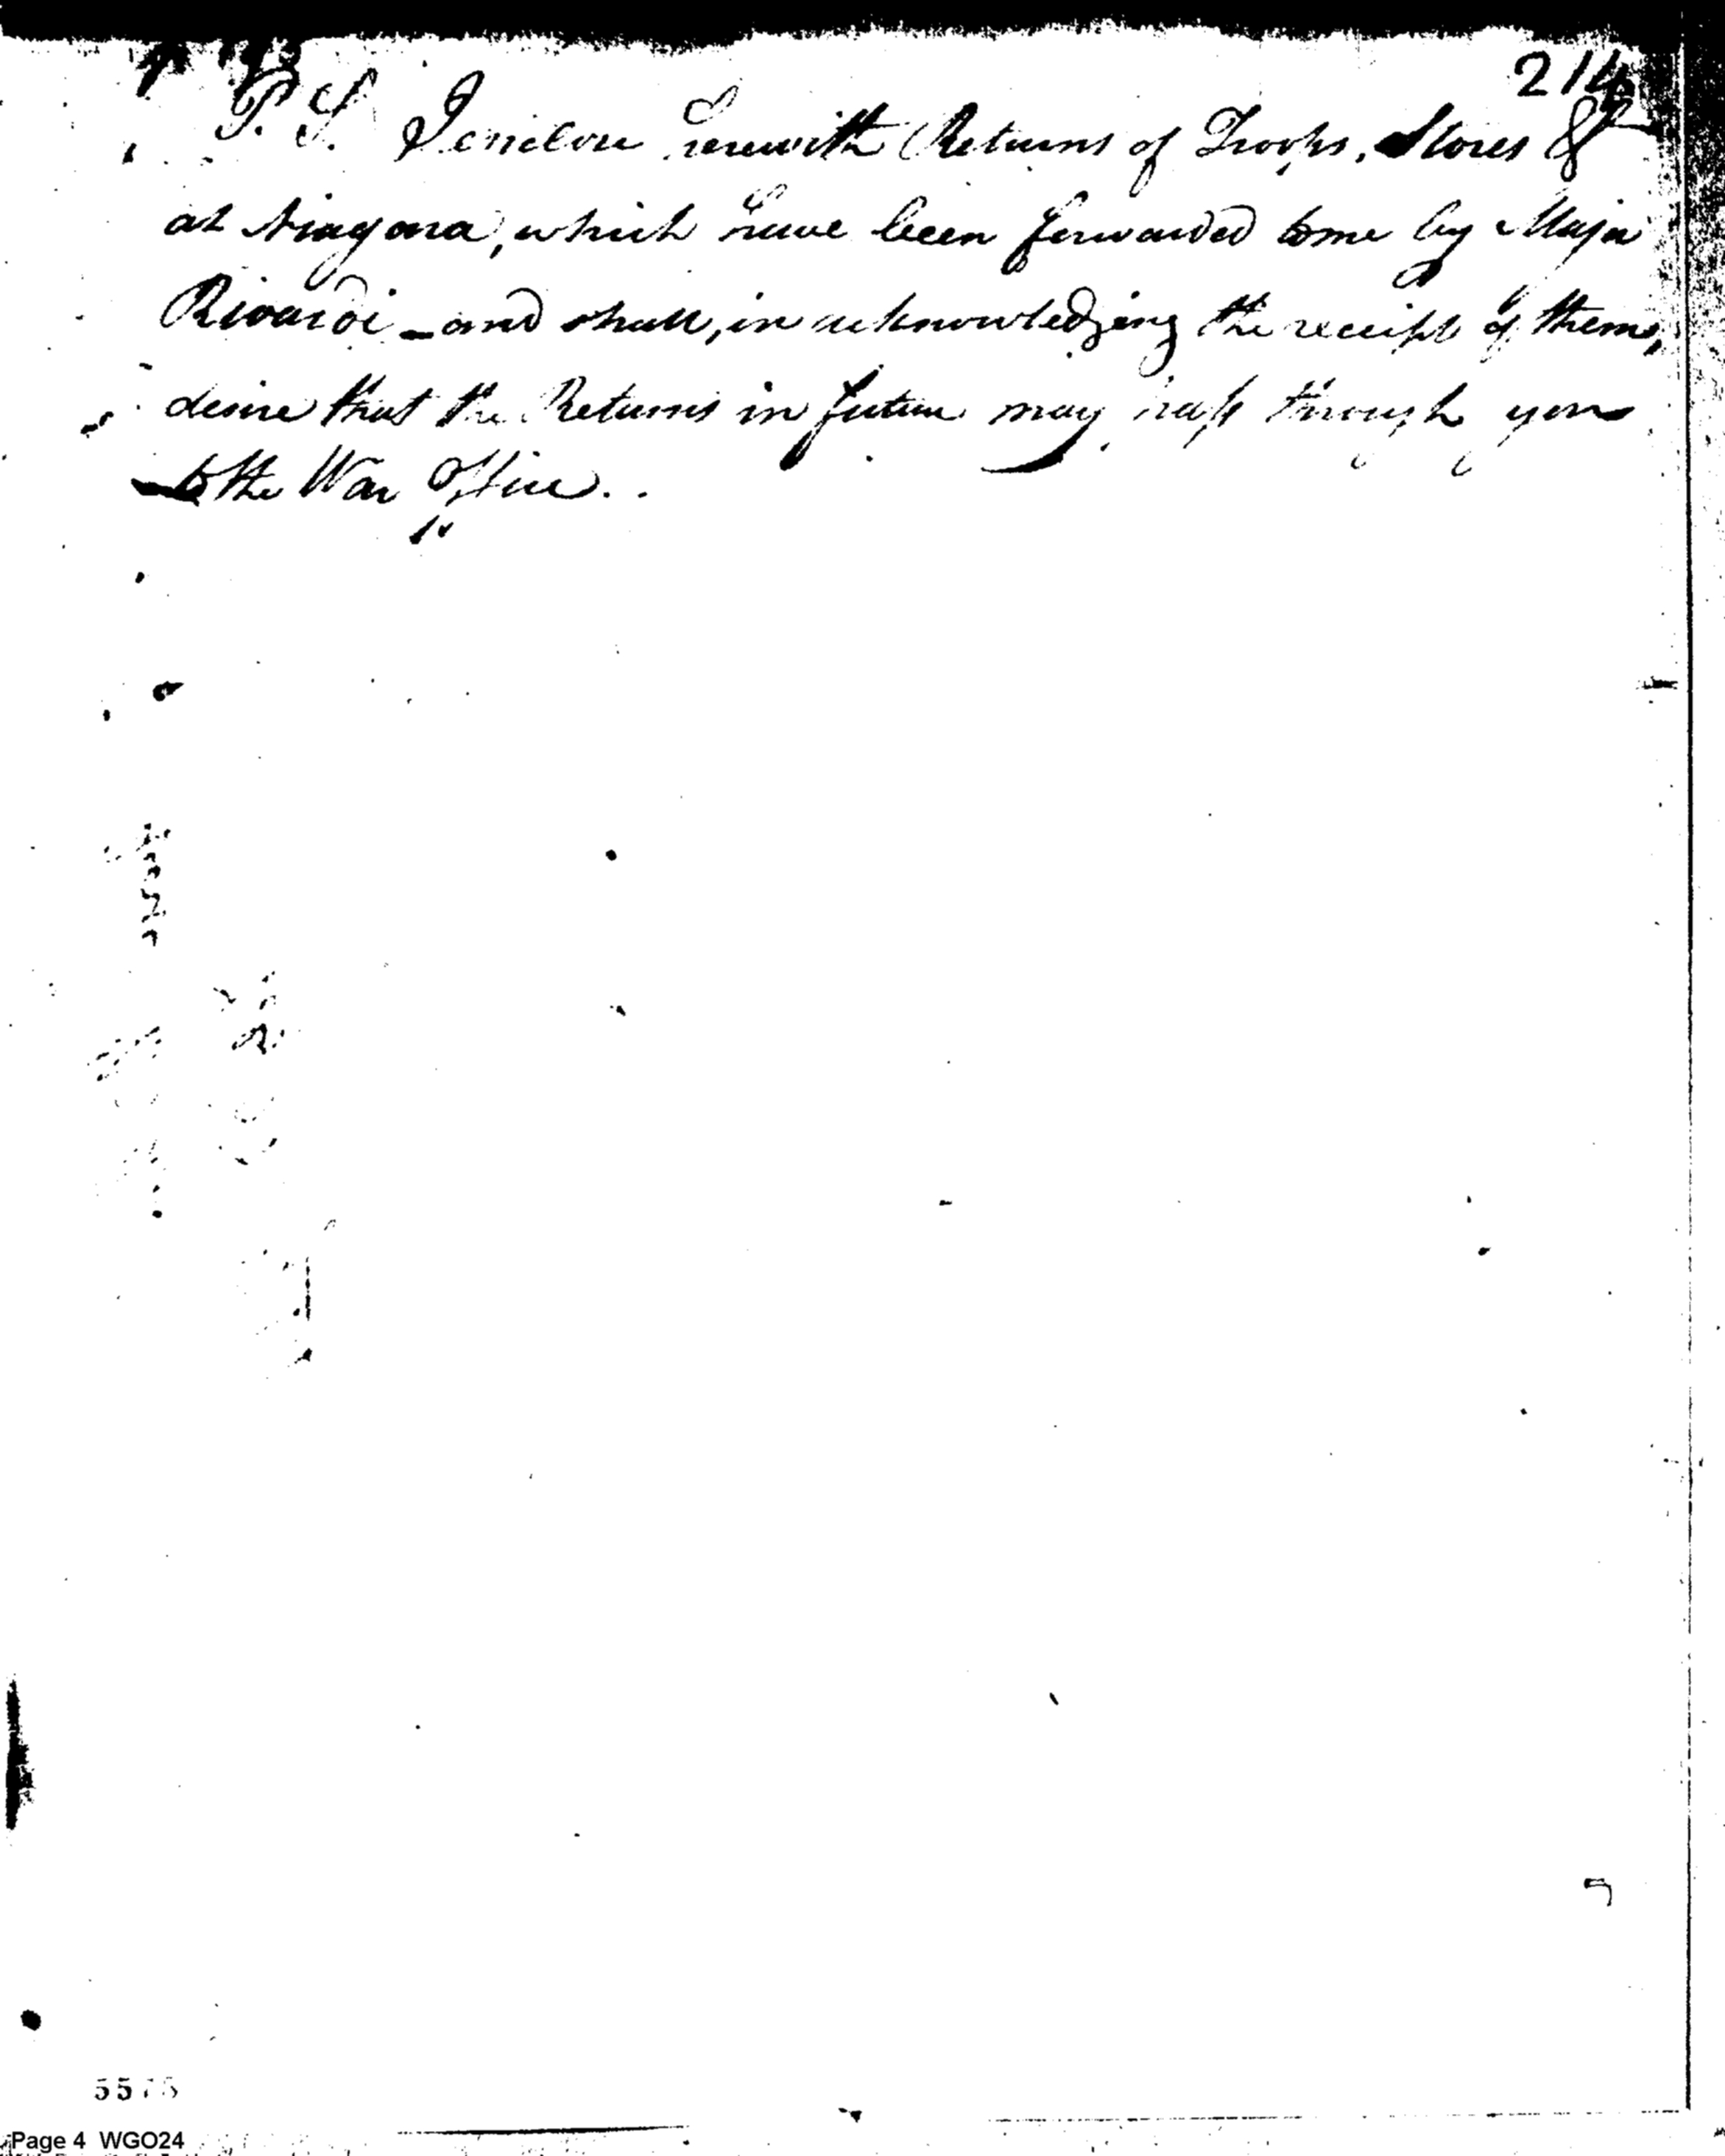 214
P. S. I enclose herewith Returns of Troops, Stores &c
at Niagara, which have been forwarded to me by Major
Rivardi – and shall, in acknowledging the receipt of them,
desire that the Returns in future may pass through you
to the War Office.
Page 4 WGO24